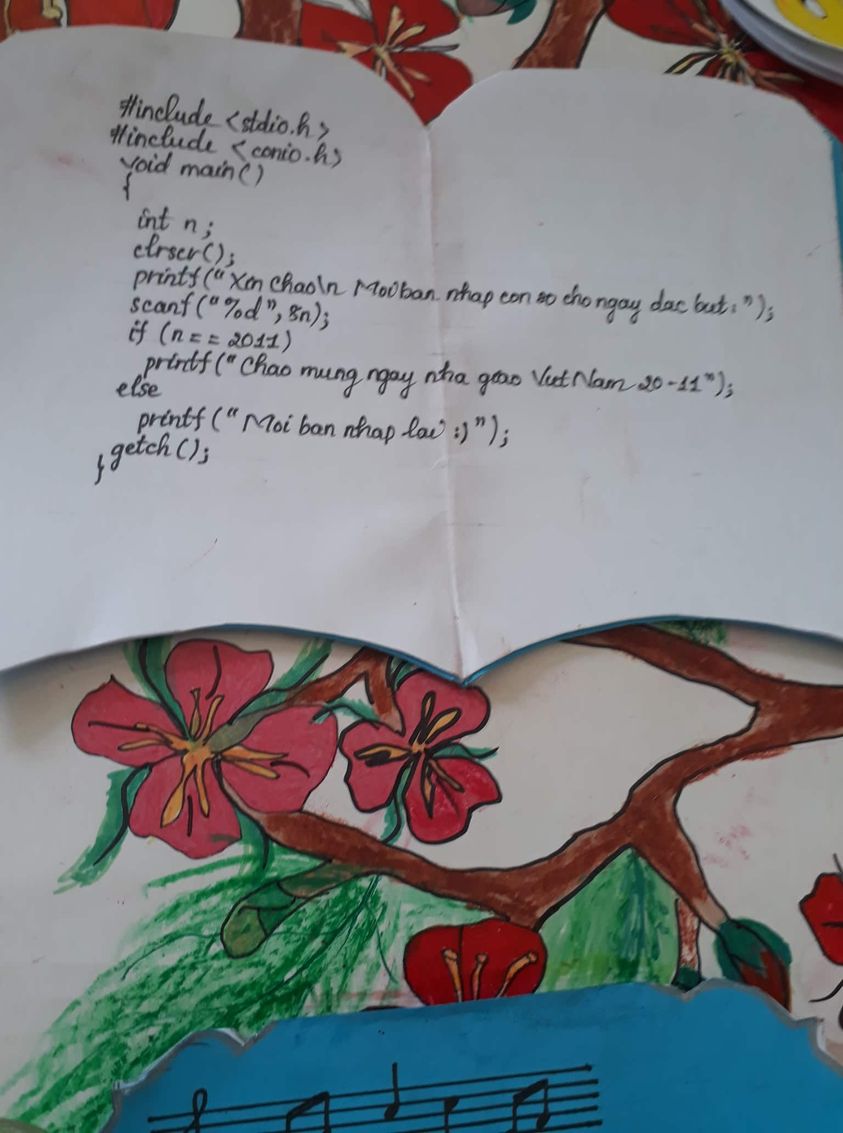 #include <stdio.h>
#include <conio.h>
void main()
{
int n;
clrscr();
printf("Xin chao\n Moi ban nhap con so cho ngay dac biet:");
scanf("%d", &n);
if (n == 2011)
printf("Chao mung ngay nha giao Viet Nam 20-11");
else
printf("Moi ban nhap lai :)");
getch();
}